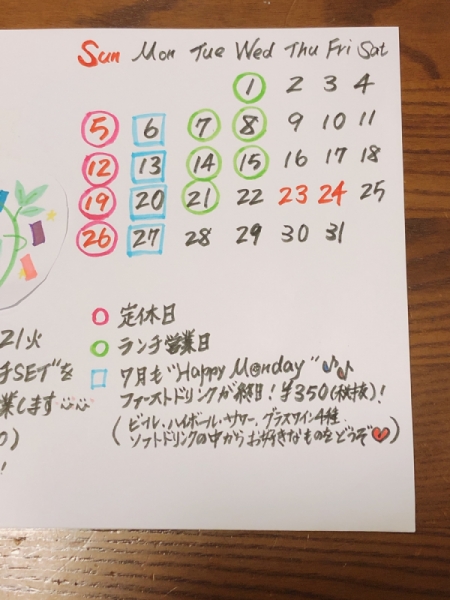 Sun Mon Tue Wed Thu Fri Sat
1 2 3 4
5 6 7 8 9 10 11
12 13 14 15 16 17 18
19 20 21 22 23 24 25
26 27 28 29 30 31
定休日
ランチ営業日
7月も"Happy Monday"♪♪
ファーストドリンクが終日!¥350(税抜)!
(ビール・ハイボール・サワー、グラスワイン4種
ソフトドリンクの中からお好きなものをどうぞ♥)
21火
チSET"を
業します
0)
!